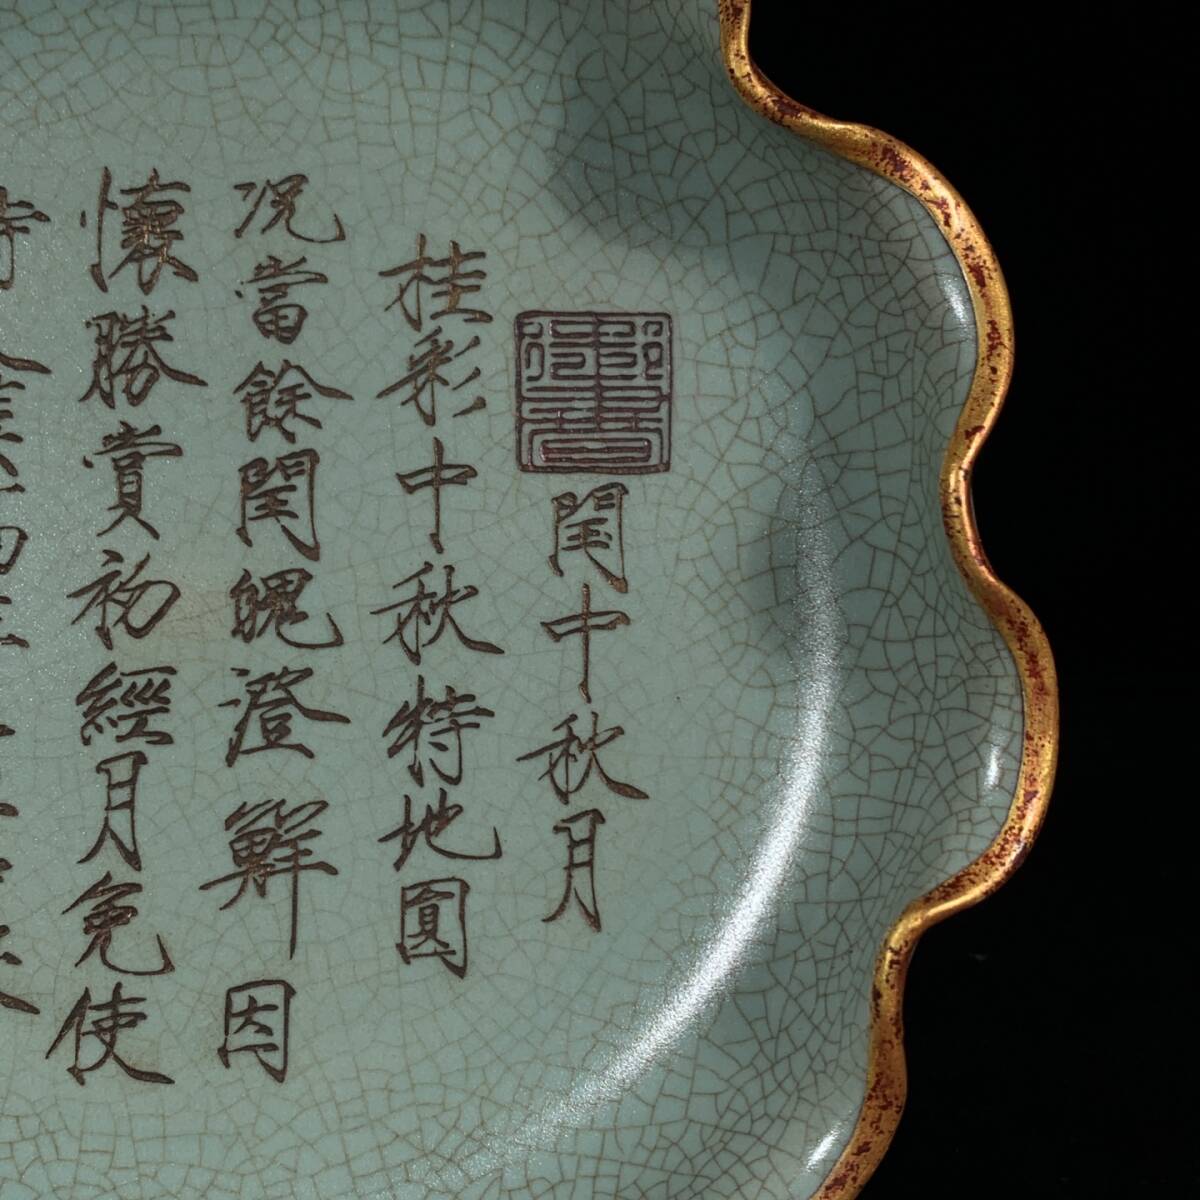 御書
閏中秋月
桂彩中秋特地圓
況當餘閏魄澄鮮因
懷勝賞初經月免使